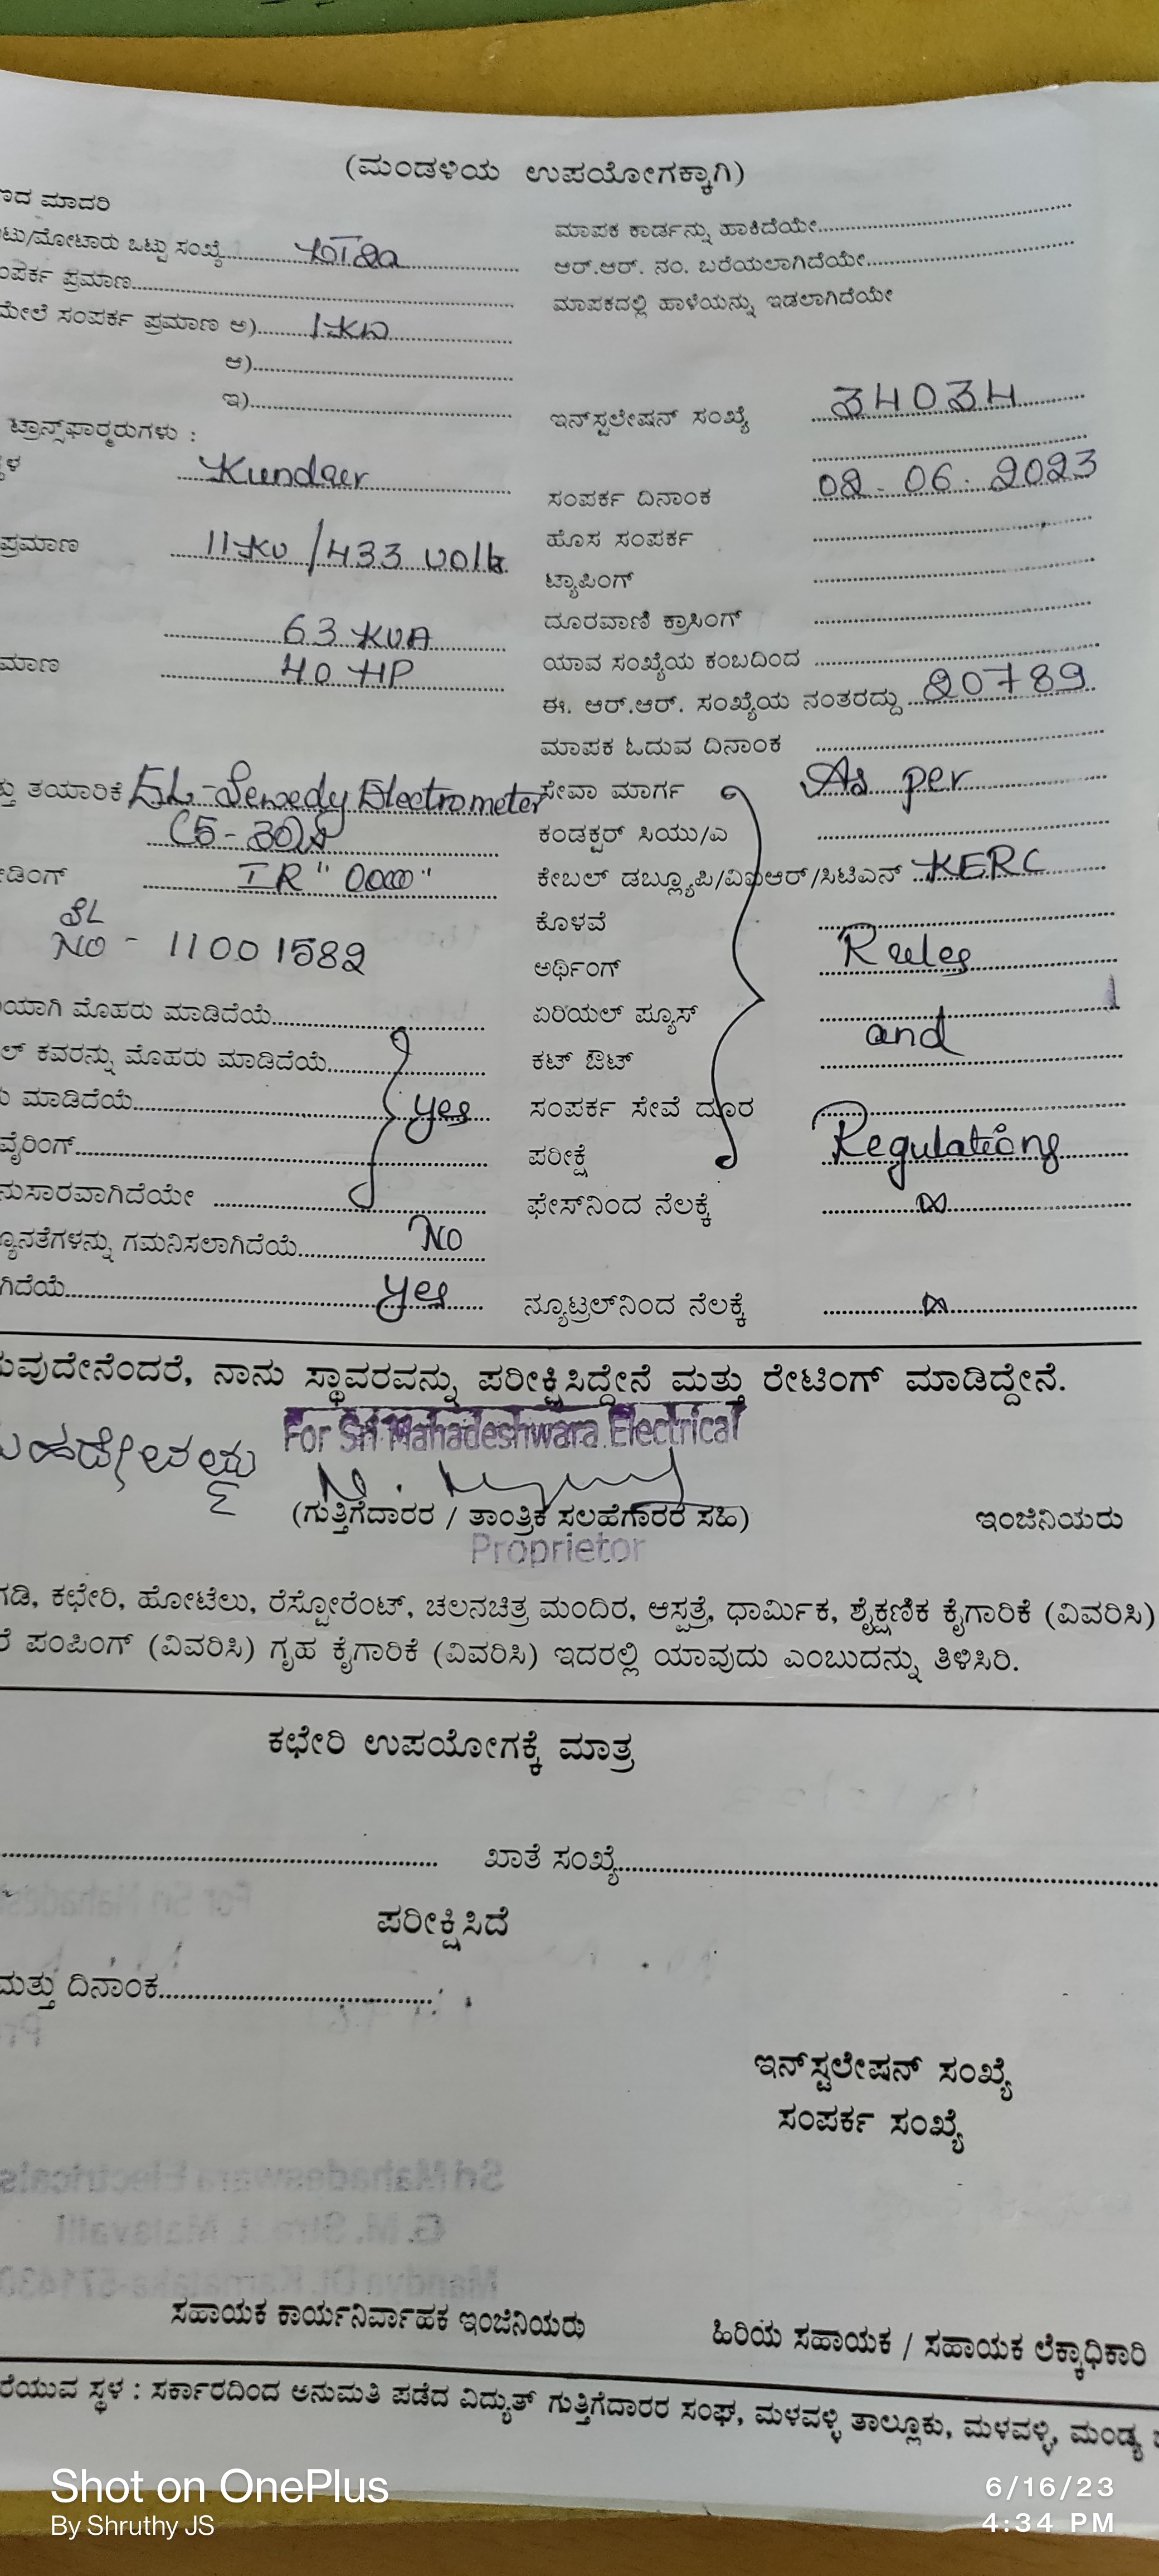 (ಮಂಡಳಿಯ ಉಪಯೋಗಕ್ಕಾಗಿ)
ಣದ ಮಾದರಿ
ಟು/ಮೋಟಾರು ಒಟ್ಟು ಸಂಖ್ಯೆ
ಂಪರ್ಕ ಪ್ರಮಾಣ
ಮೇಲೆ ಸಂಪರ್ಕ ಪ್ರಮಾಣ ಅ) 1 KW
ಆ)
ಇ)
ಟ್ರಾನ್ಸ್‌ಫಾರ್ಮರುಗಳು :
ಳ Kundaer
ಪ್ರಮಾಣ 11 KV / 433 Volt
63 KVA
ಮಾಣ 40 HP
ತ್ತು ತಯಾರಿಕೆ EL-Sewedy Electrometer
(5-30)A
ಡಿಂಗ್ IR "0000"
SL
NO - 11001582
ಯಾಗಿ ಮೊಹರು ಮಾಡಿದೆಯೆ
ಲ್ ಕವರನ್ನು ಮೊಹರು ಮಾಡಿದೆಯೆ
ು ಮಾಡಿದೆಯೆ yes
ವೈರಿಂಗ್
ನುಸಾರವಾಗಿದೆಯೇ
್ಯೂನತೆಗಳನ್ನು ಗಮನಿಸಲಾಗಿದೆಯೆ No
ಗಿದೆಯೆ yes
ಮಾಪಕ ಕಾರ್ಡನ್ನು ಹಾಕಿದೆಯೇ
ಆರ್.ಆರ್. ನಂ. ಬರೆಯಲಾಗಿದೆಯೇ
ಮಾಪಕದಲ್ಲಿ ಹಾಳೆಯನ್ನು ಇಡಲಾಗಿದೆಯೇ
ಇನ್‌ಸ್ಟಲೇಷನ್ ಸಂಖ್ಯೆ 34034
ಸಂಪರ್ಕ ದಿನಾಂಕ 02-06-2023
ಹೊಸ ಸಂಪರ್ಕ
ಟ್ಯಾಪಿಂಗ್
ದೂರವಾಣಿ ಕ್ರಾಸಿಂಗ್
ಯಾವ ಸಂಖ್ಯೆಯ ಕಂಬದಿಂದ
ಈ. ಆರ್.ಆರ್. ಸಂಖ್ಯೆಯ ನಂತರದ್ದು 20789
ಮಾಪಕ ಓದುವ ದಿನಾಂಕ
ಸೇವಾ ಮಾರ್ಗ As per
ಕಂಡಕ್ಟರ್ ಸಿಯು/ಎ
ಕೇಬಲ್ ಡಬ್ಲ್ಯೂಪಿ/ವಿಐಆರ್/ಸಿಟಿಎನ್ KERC
ಕೊಳವೆ
ಅರ್ಥಿಂಗ್ Rules
ಏರಿಯಲ್ ಪ್ಯೂಸ್
ಕಟ್ ಔಟ್ and
ಸಂಪರ್ಕ ಸೇವೆ ದೂರ
ಪರೀಕ್ಷೆ Regulations
ಫೇಸ್‌ನಿಂದ ನೆಲಕ್ಕೆ
ನ್ಯೂಟ್ರಲ್‌ನಿಂದ ನೆಲಕ್ಕೆ
ುವುದೇನೆಂದರೆ, ನಾನು ಸ್ಥಾವರವನ್ನು ಪರೀಕ್ಷಿಸಿದ್ದೇನೆ ಮತ್ತು ರೇಟಿಂಗ್ ಮಾಡಿದ್ದೇನೆ.
For Sri Mahadeshwara Electrical
(ಗುತ್ತಿಗೆದಾರರ / ತಾಂತ್ರಿಕ ಸಲಹೆಗಾರರ ಸಹಿ) ಇಂಜಿನಿಯರು
Proprietor
ಗಡಿ, ಕಛೇರಿ, ಹೋಟೆಲು, ರೆಸ್ಟೋರೆಂಟ್, ಚಲನಚಿತ್ರ ಮಂದಿರ, ಆಸ್ಪತ್ರೆ, ಧಾರ್ಮಿಕ, ಶೈಕ್ಷಣಿಕ ಕೈಗಾರಿಕೆ (ವಿವರಿಸಿ)
ರೆ ಪಂಪಿಂಗ್ (ವಿವರಿಸಿ) ಗೃಹ ಕೈಗಾರಿಕೆ (ವಿವರಿಸಿ) ಇದರಲ್ಲಿ ಯಾವುದು ಎಂಬುದನ್ನು ತಿಳಿಸಿರಿ.
ಕಛೇರಿ ಉಪಯೋಗಕ್ಕೆ ಮಾತ್ರ
ಖಾತೆ ಸಂಖ್ಯೆ
ಪರೀಕ್ಷಿಸಿದೆ
ಮತ್ತು ದಿನಾಂಕ
ಇನ್‌ಸ್ಟಲೇಷನ್ ಸಂಖ್ಯೆ
ಸಂಪರ್ಕ ಸಂಖ್ಯೆ
ಸಹಾಯಕ ಕಾರ್ಯನಿರ್ವಾಹಕ ಇಂಜಿನಿಯರು ಹಿರಿಯ ಸಹಾಯಕ / ಸಹಾಯಕ ಲೆಕ್ಕಾಧಿಕಾರಿ
ರೆಯುವ ಸ್ಥಳ : ಸರ್ಕಾರದಿಂದ ಅನುಮತಿ ಪಡೆದ ವಿದ್ಯುತ್ ಗುತ್ತಿಗೆದಾರರ ಸಂಘ, ಮಳವಳ್ಳಿ ತಾಲ್ಲೂಕು, ಮಳವಳ್ಳಿ, ಮಂಡ್ಯ
Shot on OnePlus
By Shruthy JS
6/16/23
4:34 PM